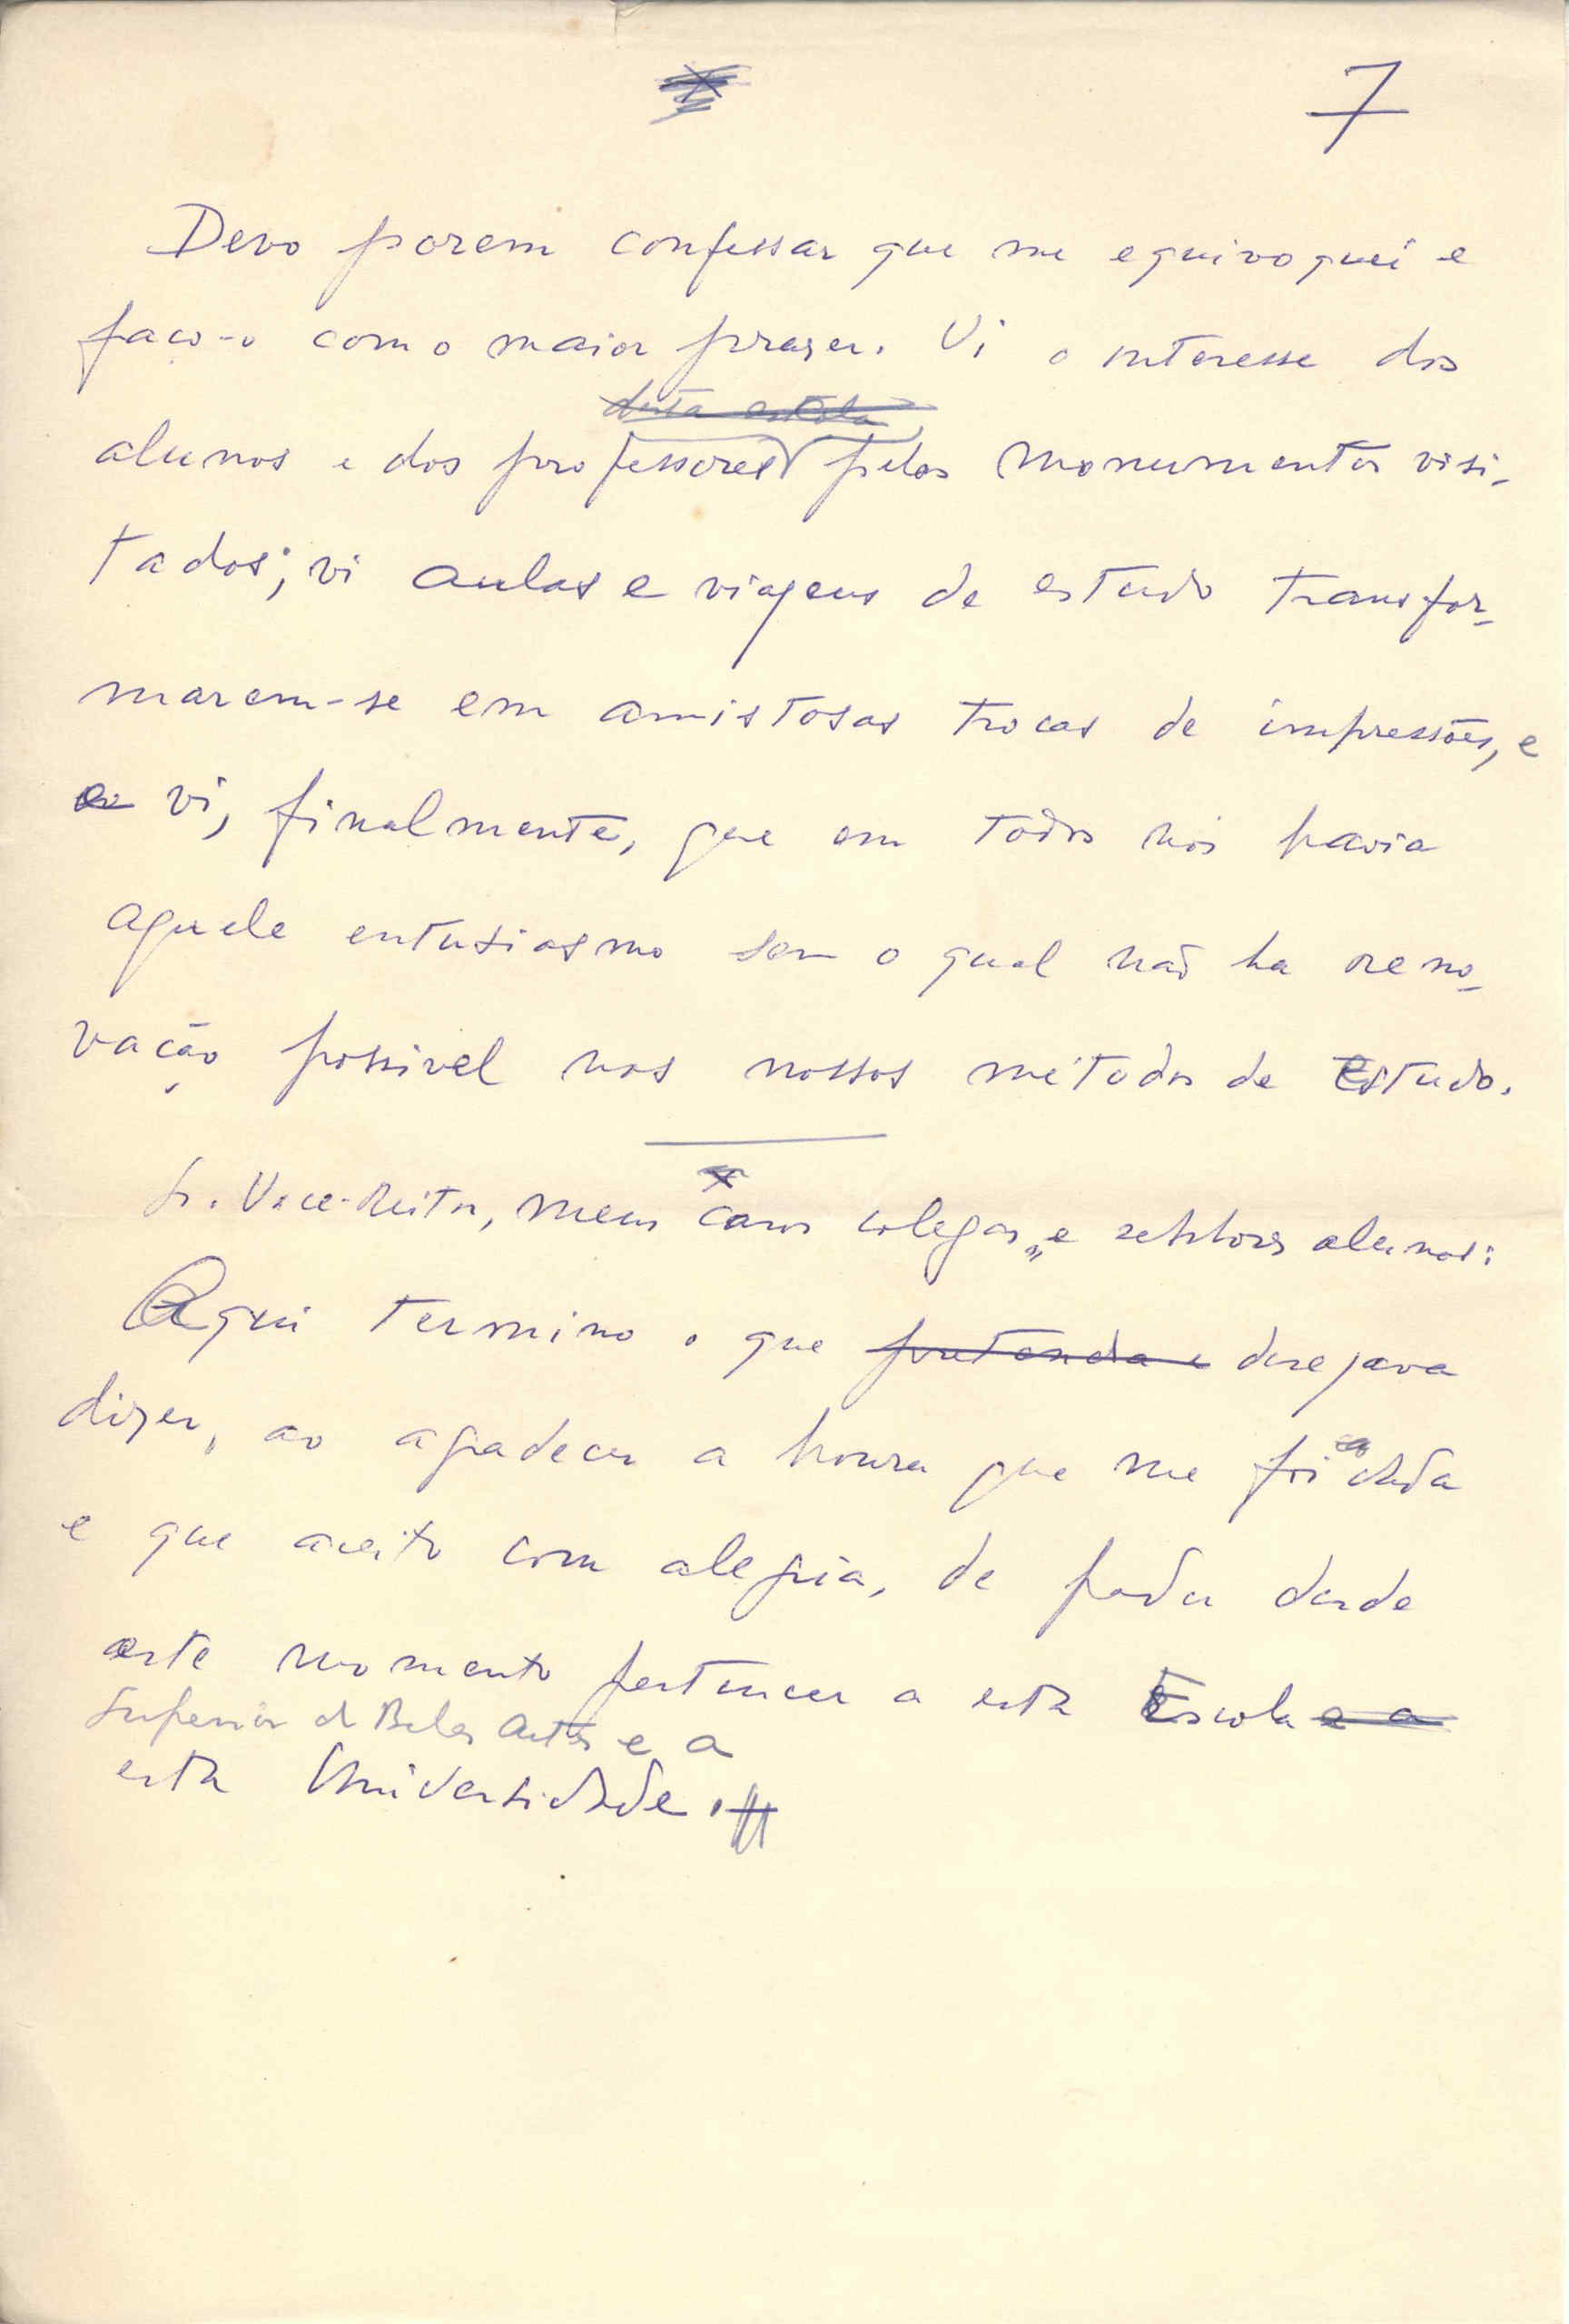 7
Devo porem confessar que me equivoquei e
faço-o com o maior prazer. Vi o interesse dos
desta escola
alunos e dos professores pelos monumentos visi-
tados; vi aulas e viagens de estudo transfor-
marem-se em amistosas trocas de impressões, e
vi, finalmente, que em todos nós havia
aquele entusiasmo sem o qual não ha reno-
vação possivel nos nossos métodos de Estudo.
Sr. Vice-Reitor, meus caros colegas, e senhores alunos:
Aqui termino o que pretendia e desejava
dizer, ao agradecer a honra que me foi dada
e que aceito com alegria, de poder desde
este momento pertencer a esta Escola e a
Superior de Belas Artes e a
esta Universidade.